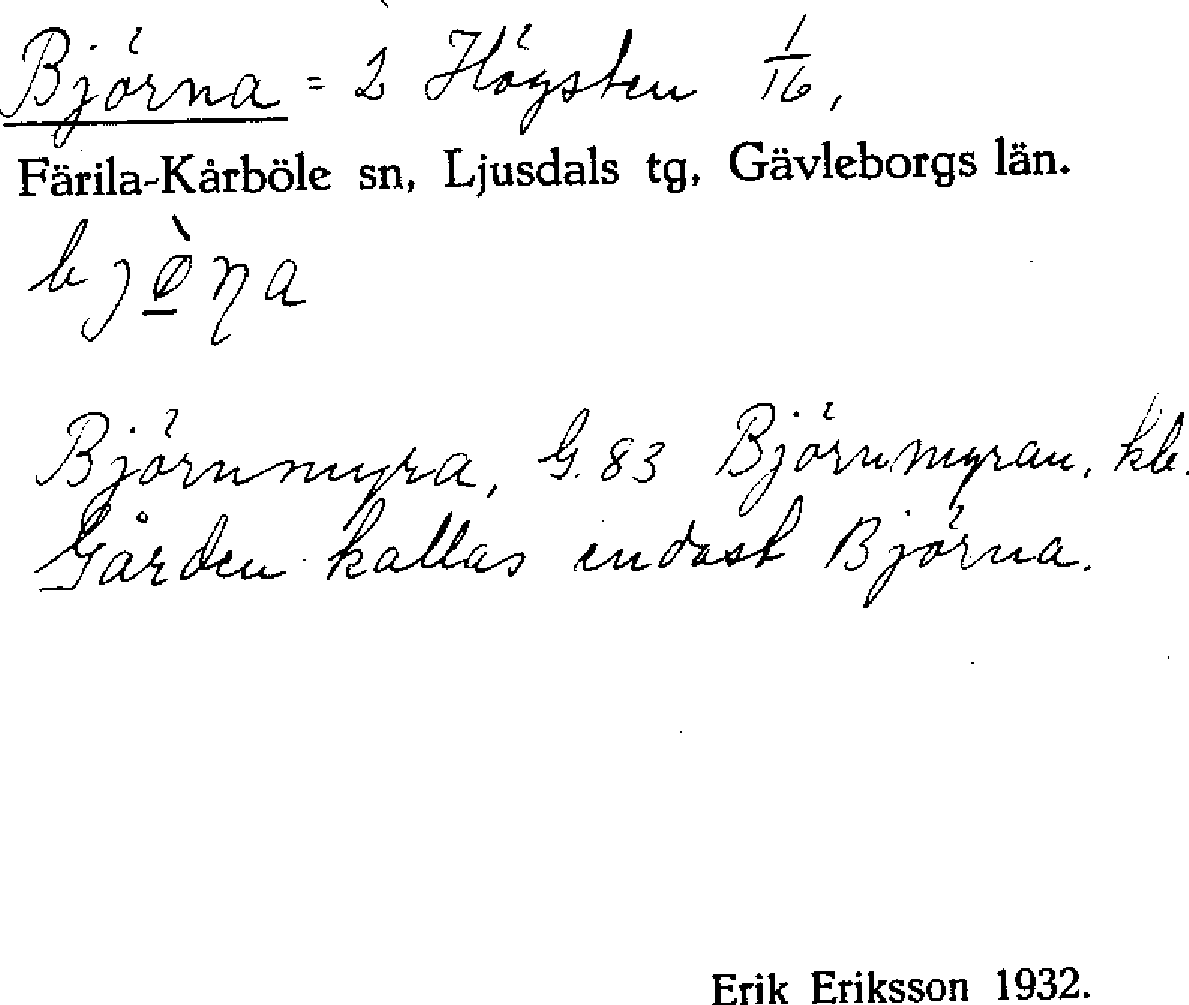 Björna = 2 Högsten 1/16,
Färila-Kårböle sn, Ljusdals tg, Gävleborgs län.
bjø̠̀ŋa
Björnmyra, G. 83 Björnmyran, kb.
Gården kallas endast Björna.
Erik Eriksson 1932.